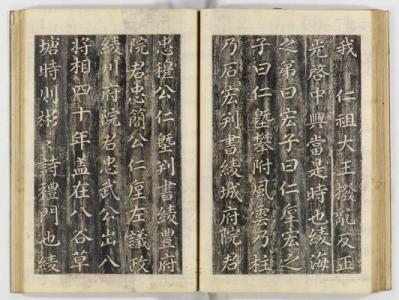 我 仁祖大王撥亂反正
光啓中興當是時也綾海
之弟曰宏子曰仁垕宏之
子曰仁塈攀附風雲乃柱
乃石宏判書綾城府院君
忠穆公仁塈判書綾豊府
院君忠簡公仁垕左議政
綾川府院君忠武公出入
將相四十年盖在八谷草
塘時則彬〻詩禮門也綾